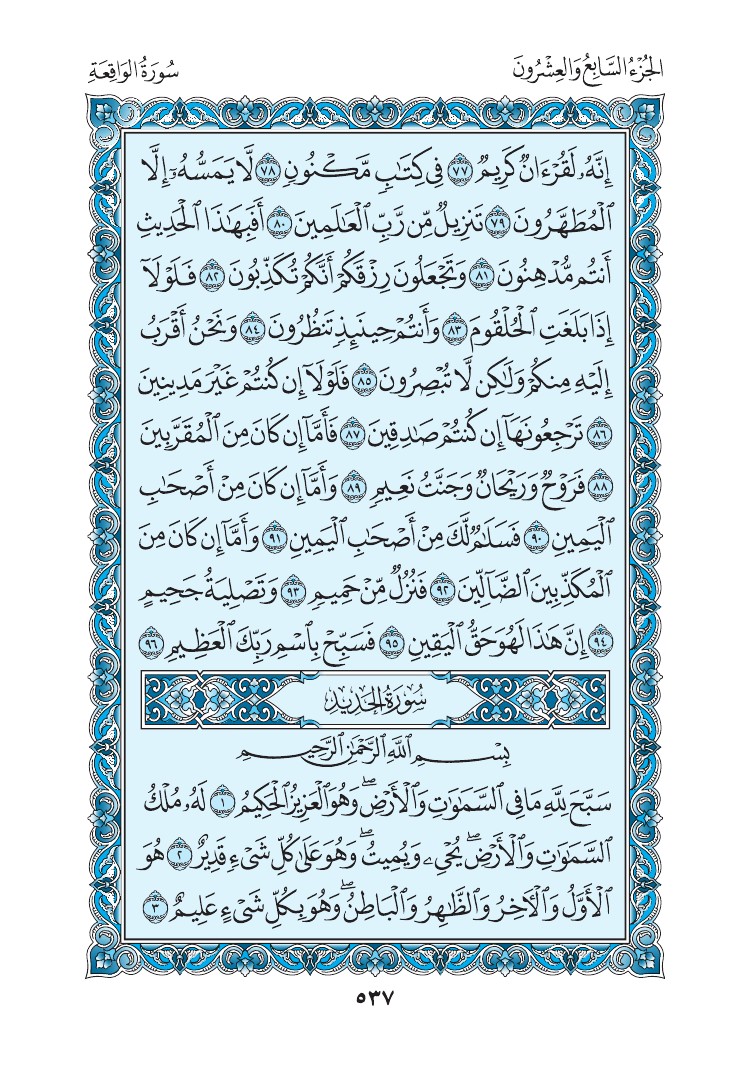 الجُزْءُ السَّابِعُ وَالعِشْرُونَ
سُورَةُ الوَاقِعَةِ
إِنَّهُۥ لَقُرْءَانٌ كَرِيمٌ ٧٧ فِي كِتَٰبٍ مَّكْنُونٍ ٧٨ لَّا يَمَسُّهُۥٓ إِلَّا
الْمُطَهَّرُونَ ٧٩ تَنزِيلٌ مِّن رَّبِّ الْعَٰلَمِينَ ٨٠ أَفَبِهَٰذَا الْحَدِيثِ
أَنتُم مُّدْهِنُونَ ٨١ وَتَجْعَلُونَ رِزْقَكُمْ أَنَّكُمْ تُكَذِّبُونَ ٨٢ فَلَوْلَآ
إِذَا بَلَغَتِ الْحُلْقُومَ ٨٣ وَأَنتُمْ حِينَئِذٍ تَنظُرُونَ ٨٤ وَنَحْنُ أَقْرَبُ
إِلَيْهِ مِنكُمْ وَلَٰكِن لَّا تُبْصِرُونَ ٨٥ فَلَوْلَآ إِن كُنتُمْ غَيْرَ مَدِينِينَ
٨٦ تَرْجِعُونَهَآ إِن كُنتُمْ صَٰدِقِينَ ٨٧ فَأَمَّآ إِن كَانَ مِنَ الْمُقَرَّبِينَ
٨٨ فَرَوْحٌ وَرَيْحَانٌ وَجَنَّتُ نَعِيمٍ ٨٩ وَأَمَّآ إِن كَانَ مِنْ أَصْحَٰبِ
الْيَمِينِ ٩٠ فَسَلَٰمٌ لَّكَ مِنْ أَصْحَٰبِ الْيَمِينِ ٩١ وَأَمَّآ إِن كَانَ مِنَ
الْمُكَذِّبِينَ الضَّآلِّينَ ٩٢ فَنُزُلٌ مِّنْ حَمِيمٍ ٩٣ وَتَصْلِيَةُ جَحِيمٍ
٩٤ إِنَّ هَٰذَا لَهُوَ حَقُّ الْيَقِينِ ٩٥ فَسَبِّحْ بِاسْمِ رَبِّكَ الْعَظِيمِ ٩٦
سُورَةُ الحَدِيدِ
بِسْمِ اللَّهِ الرَّحْمَٰنِ الرَّحِيمِ
سَبَّحَ لِلَّهِ مَا فِي السَّمَٰوَٰتِ وَالْأَرْضِۖ وَهُوَ الْعَزِيزُ الْحَكِيمُ ١ لَهُۥ مُلْكُ
السَّمَٰوَٰتِ وَالْأَرْضِۖ يُحْيِۦ وَيُمِيتُۖ وَهُوَ عَلَىٰ كُلِّ شَيْءٍ قَدِيرٌ ٢ هُوَ
الْأَوَّلُ وَالْءَاخِرُ وَالظَّٰهِرُ وَالْبَاطِنُۖ وَهُوَ بِكُلِّ شَيْءٍ عَلِيمٌ ٣
٥٣٧